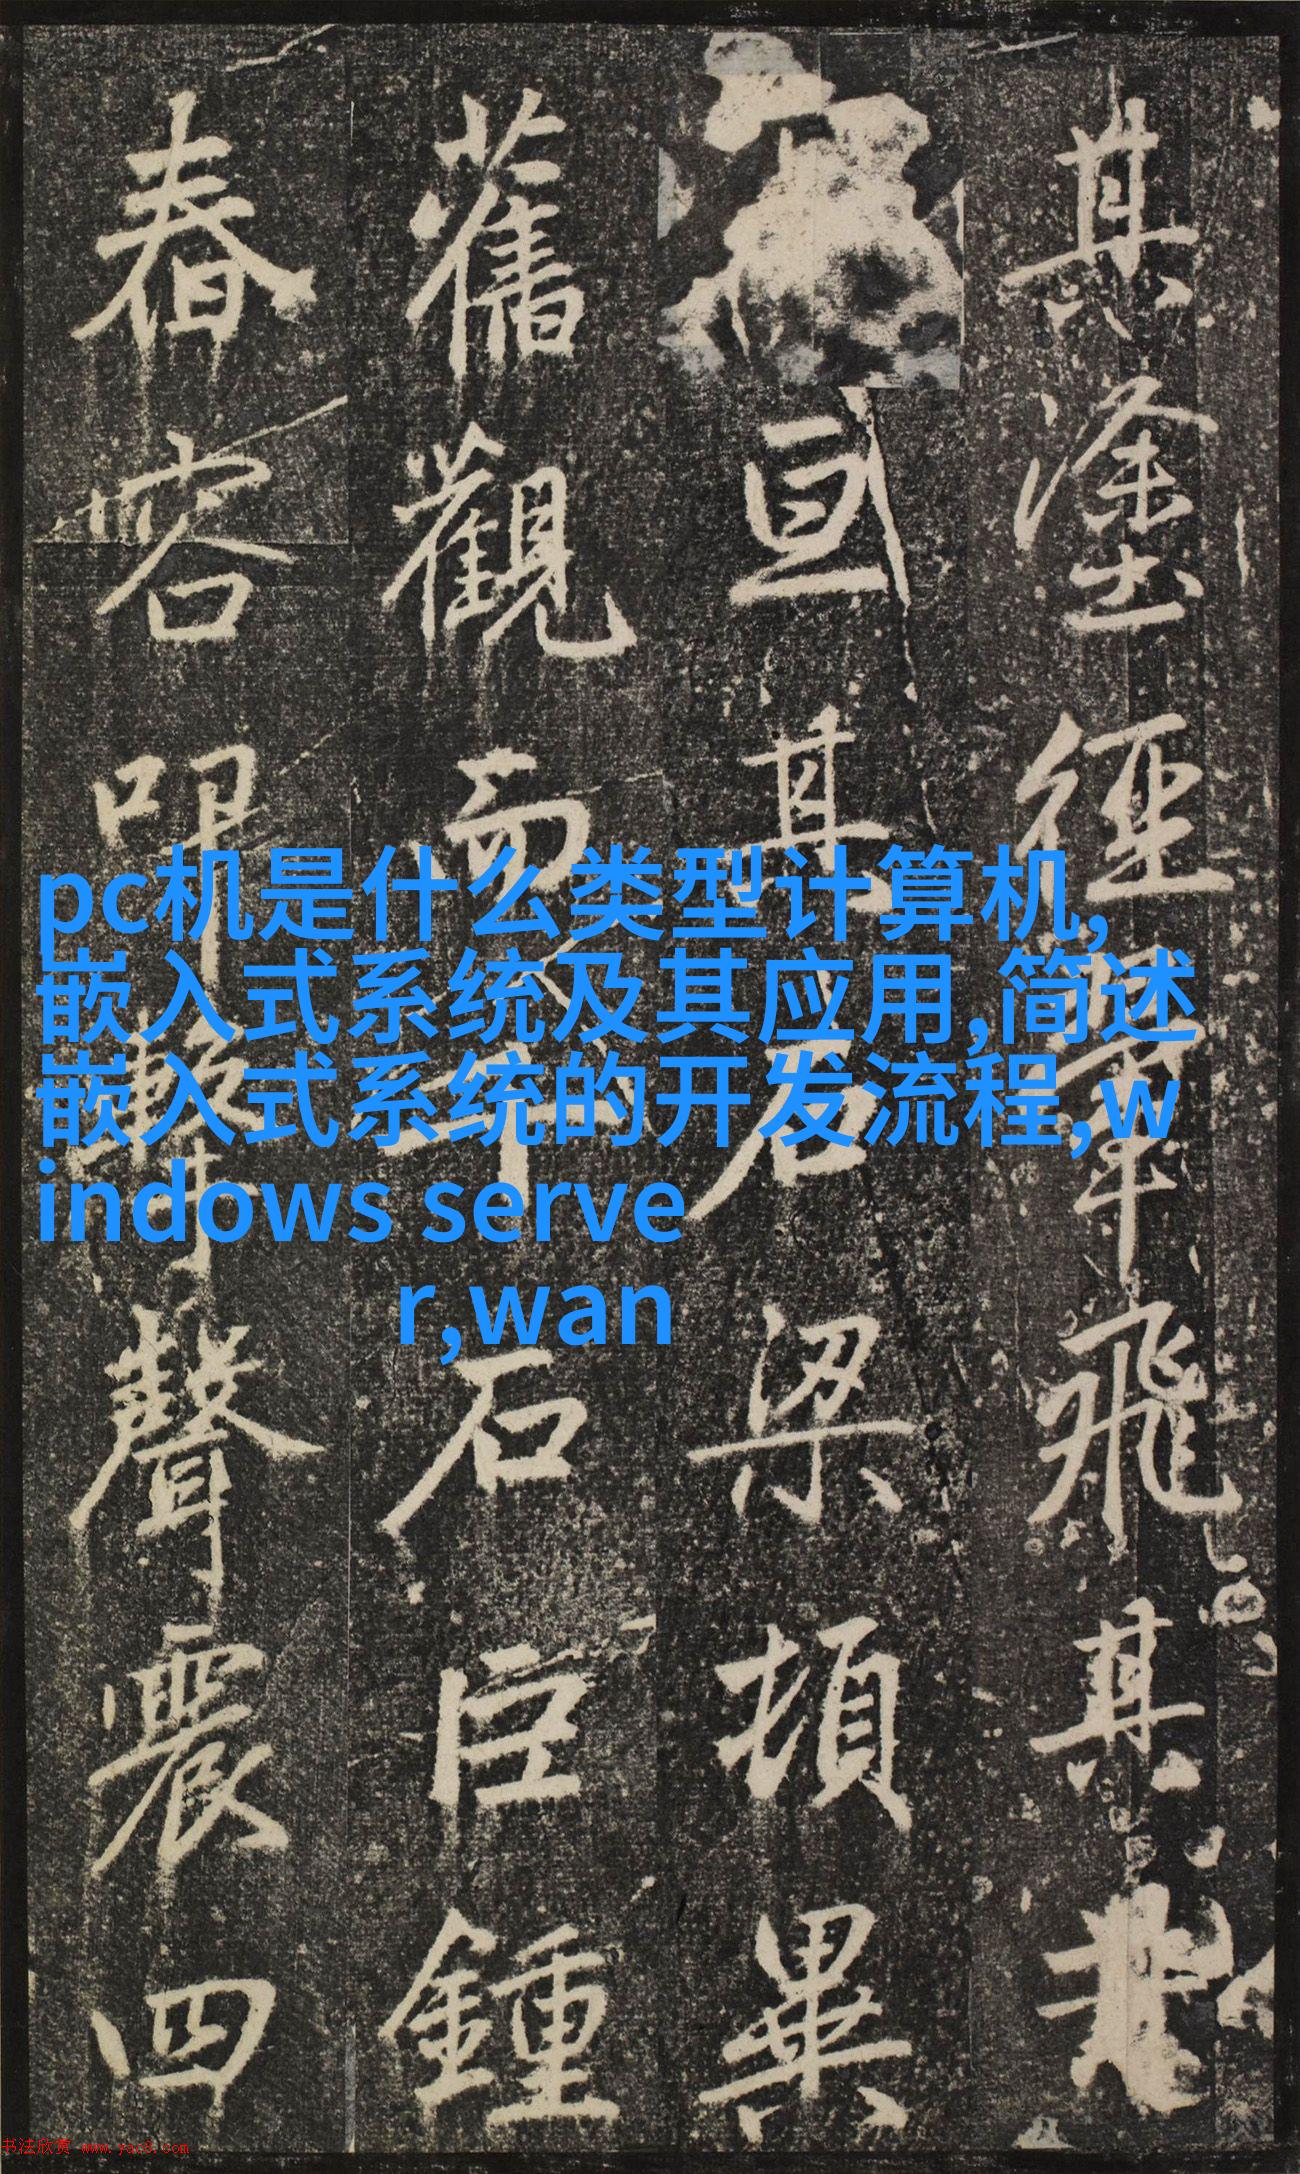 其塗經畢飛其
亘其石梁頓異
舊觀而石巨鍾
舂容叩擊聲震四
pc机是什么类型计算机,
嵌入式系统及其应用,简述
嵌入式系统的开发流程,w
indows serve
r,wan
书法欣赏 www.yac8.com